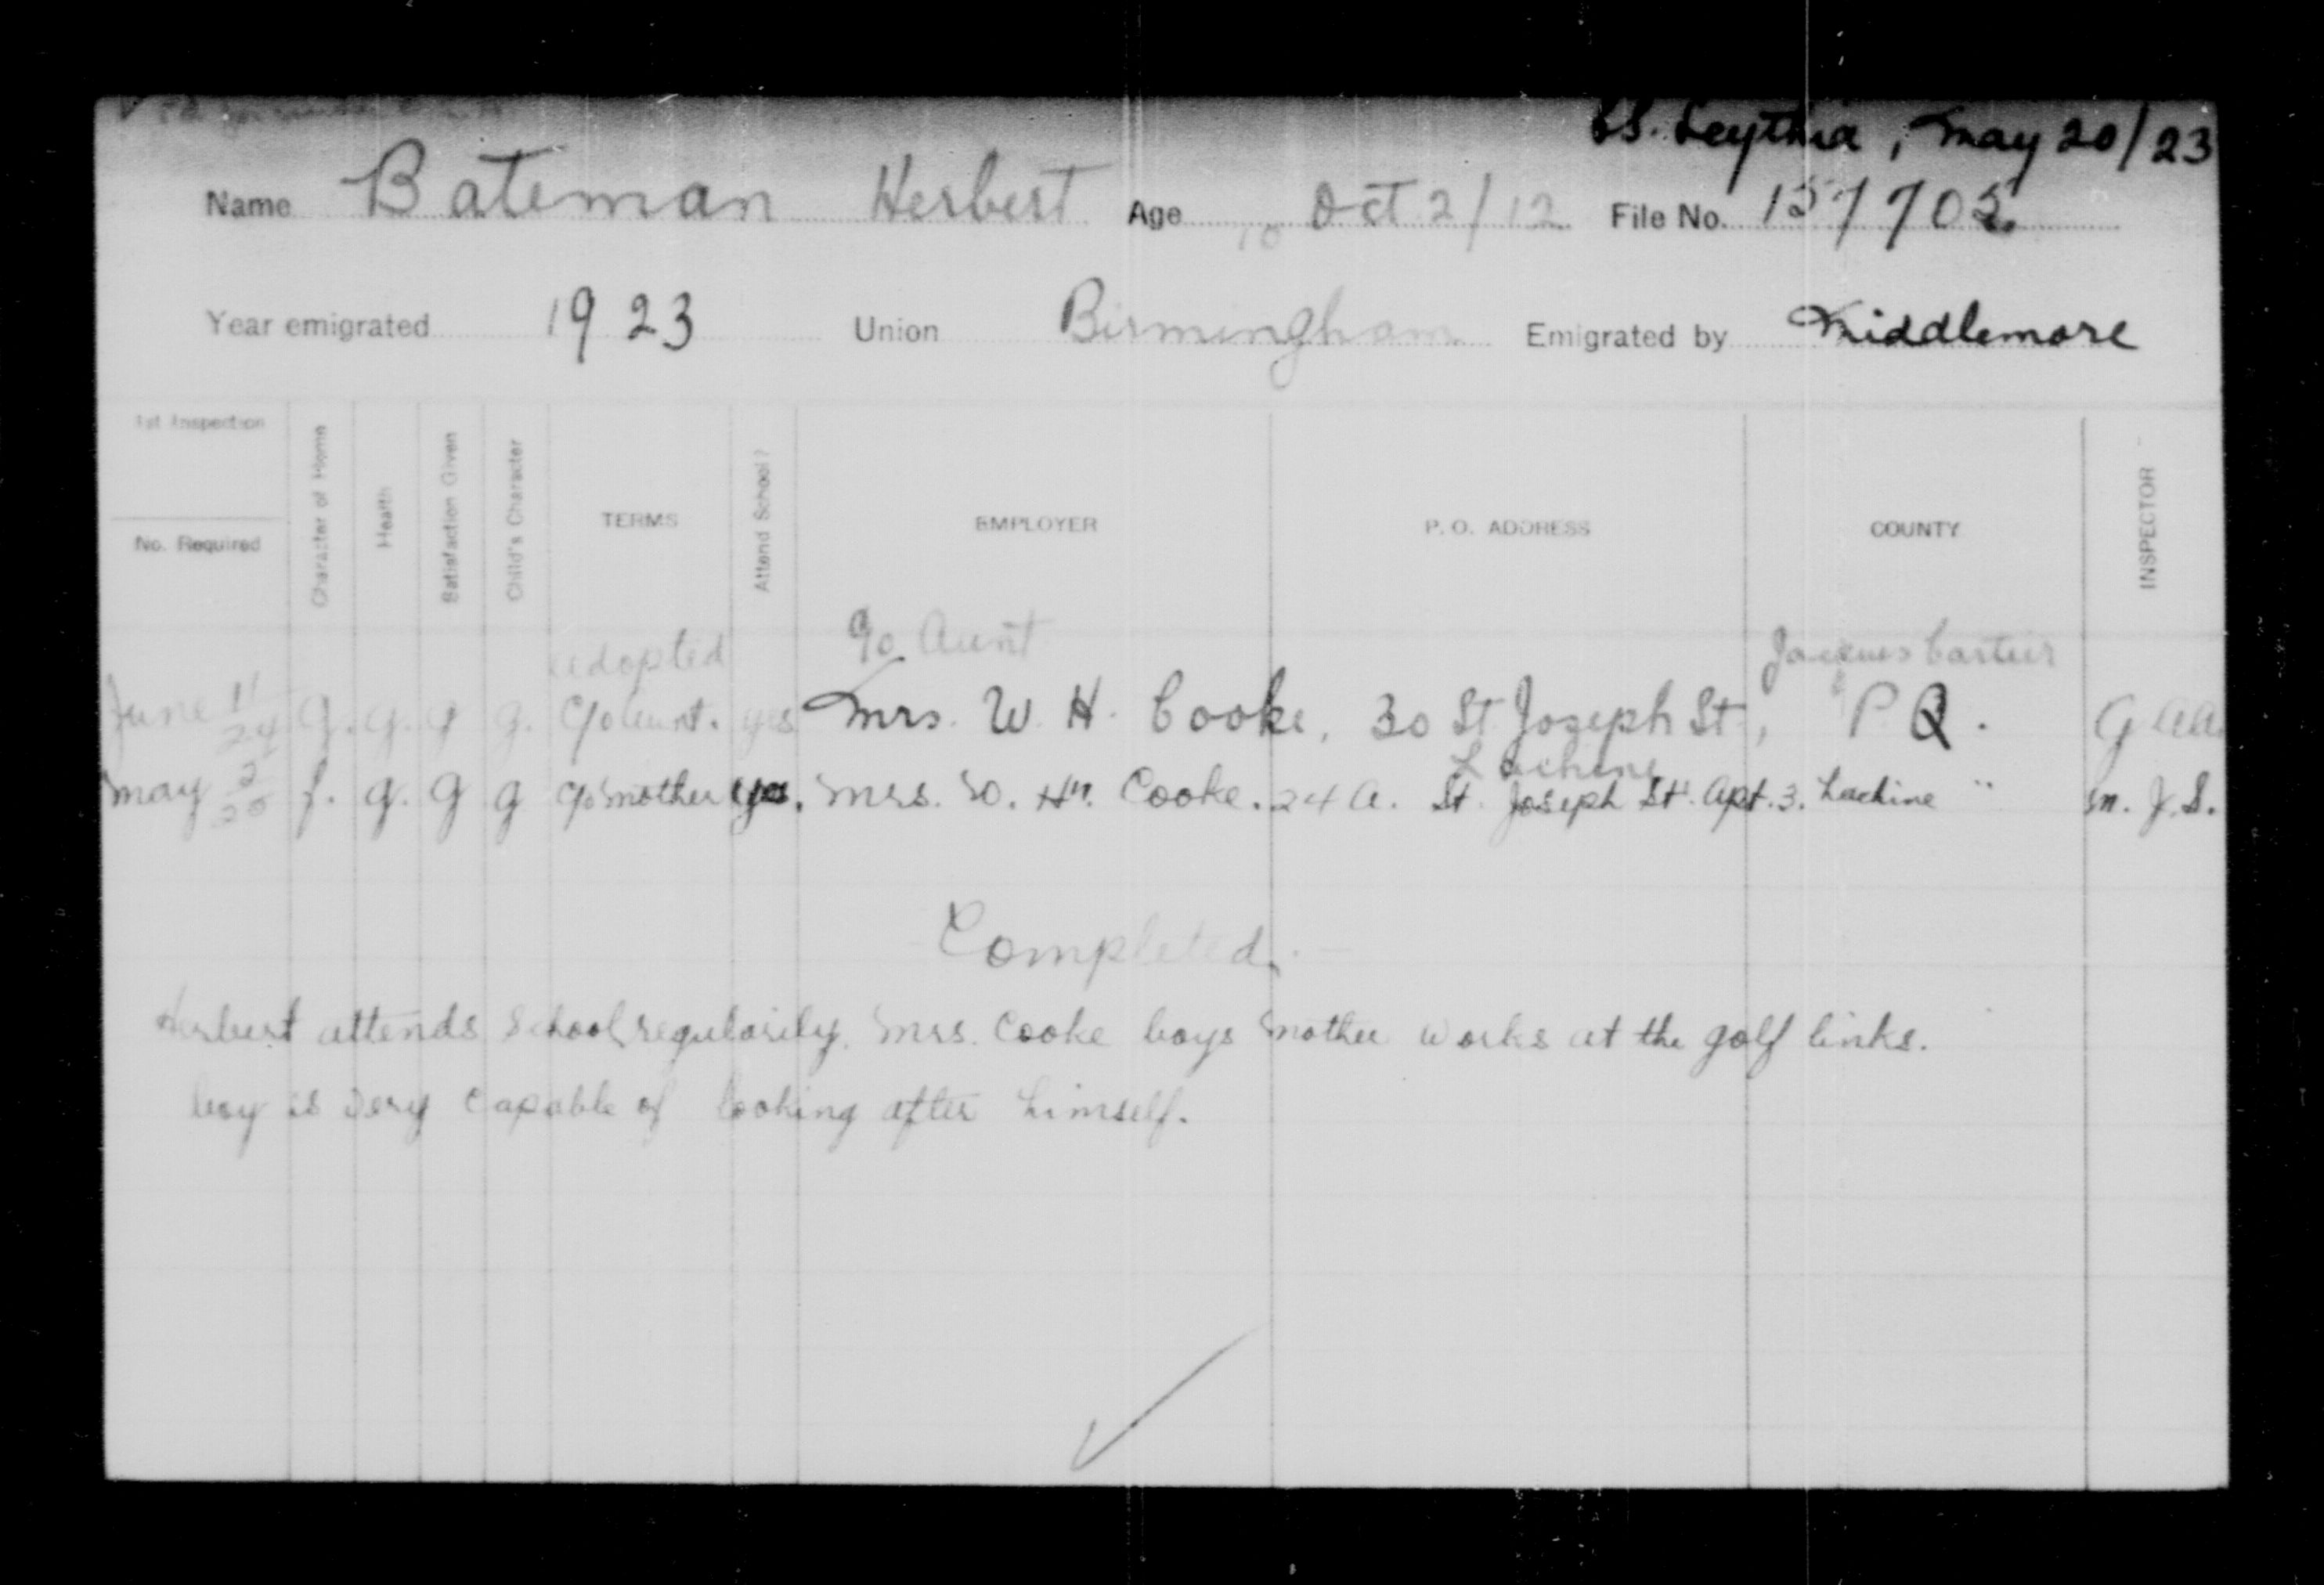 SS. Scythia, May 20/23
Name Bateman Herbert Age 10 Oct 2/12 File No. 157702
Year emigrated 1923 Union Birmingham Emigrated by Middlemore
1st Inspection
No. Required
Character of Home
Health
Satisfaction Given
Child's Character
TERMS
Attend School?
EMPLOYER
P. O. ADDRESS
COUNTY
INSPECTOR
adopted c/o Aunt Jacques Cartier
June 11/24 g. g. g g. c/o Aunt. yes Mrs. W. H. Cooke, 30 St Joseph St, P Q. G AA
Lachine
May 2/25 f. g. g g c/o mother yes. Mrs. W. H. Cooke. 24 A. St. Joseph St. Apt. 3. Lachine " M. J. S.
Completed.
Herbert attends school regularily. Mrs. Cooke boys mother works at the golf links.
boy is very capable of looking after himself.